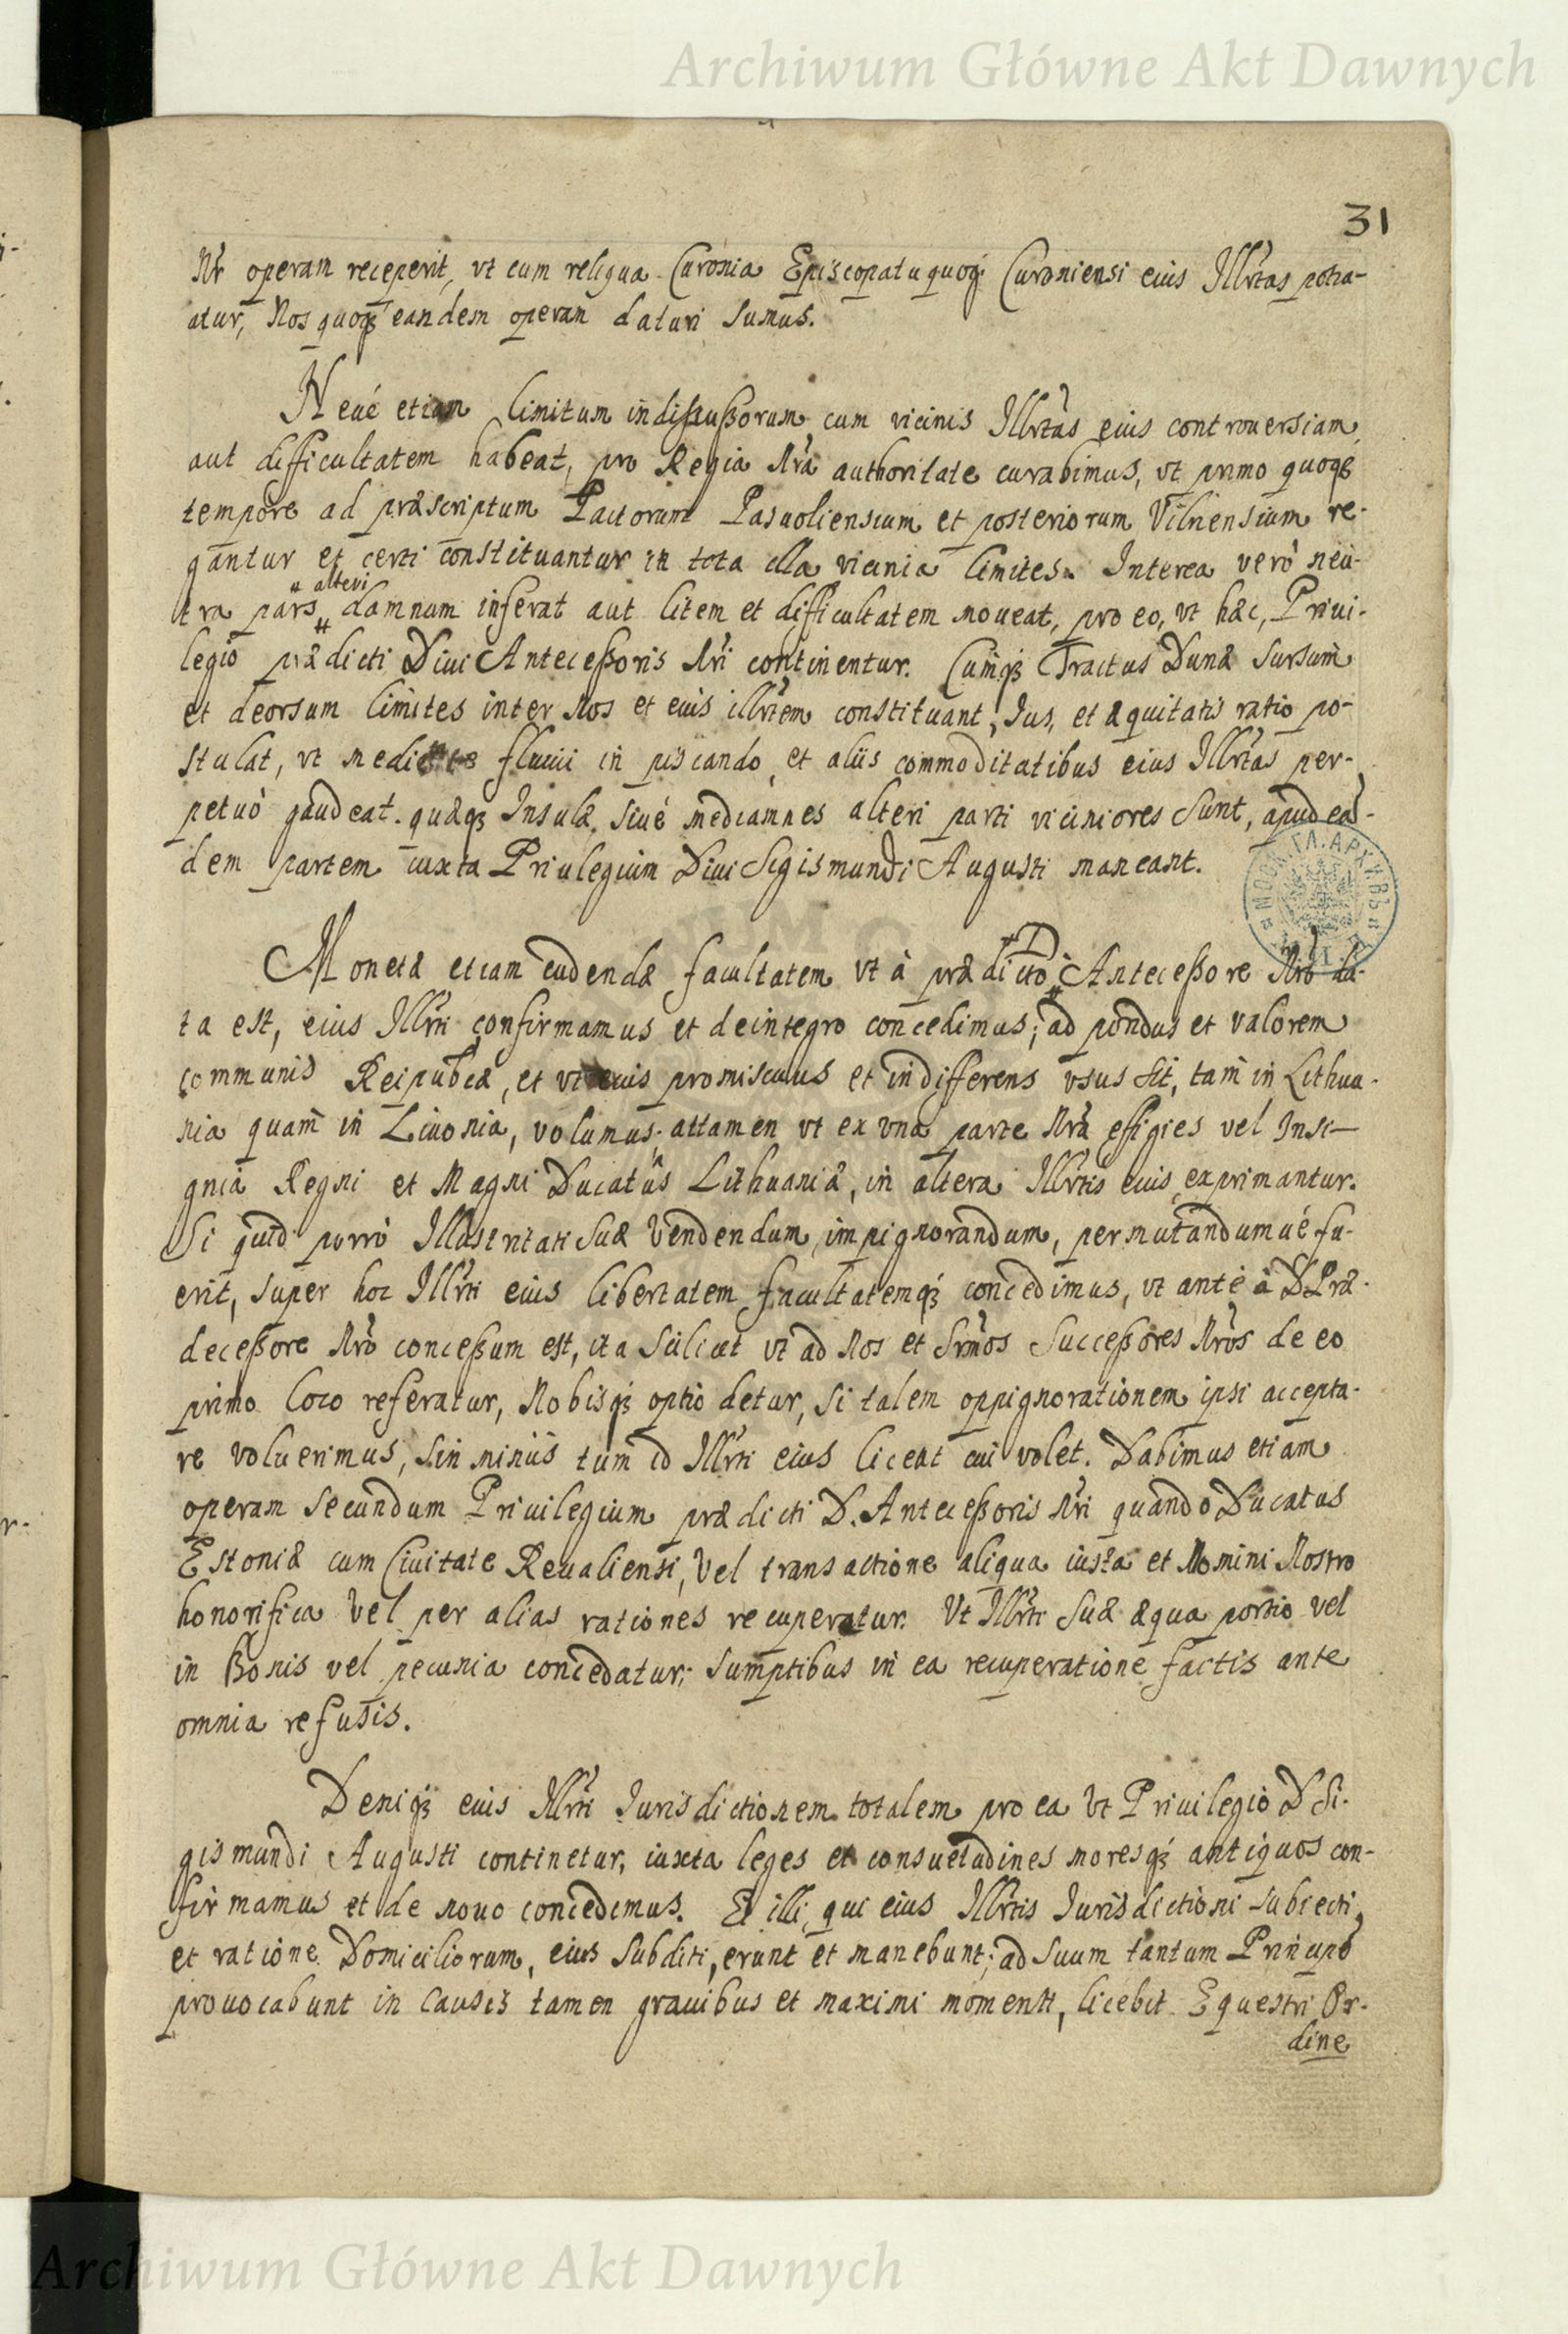 Archiwum Główne Akt Dawnych
31
Nr operam receperit, vt cum reliqua Curonia Episcopatu quoq; Curoniensi eius Illrtas potia-
atur, Nos quoq; eandem operam daturi sumus.
Neué etiam limitum indiscussorum cum vicinis Illrtas eius controuersiam
aut difficultatem habeat, pro Regia Nra authoritate curabimus, vt primo quoq;
tempore ad præscriptum Pactorum Pasuoliensium et posteriorum Vilnensium re-
gantur et certi constituantur in tota illa vicinia limites. Interea verò neu-
alteri
tra pars damnum inferat aut litem et difficultatem moueat, pro eo, vt hæc, Priui-
legio prædicti Diui Antecessoris Nri continentur. Cumq; Tractus Dunæ sursum
et deorsum limites inter Nos et eius illrtem constituant, Ius, et æquitatis ratio po-
stulat, vt fluuii in piscando, et aliis commoditatibus eius Illrtas per-
petuò gaudeat. quæq; Insulæ, siué mediamnes alteri parti viciniores sunt, apud ean-
dem partem iuxta Priulegium Diui Sigismundi Augusti maneant.
МОСК. ГЛ. АРХИВЪ
Monetæ etiam cudendæ facultatem vt à prædicto D Antecessore Nro da-
ta est, eius Illrti confirmamus et deintegro concedimus; ad pondus et valorem
communis Reipubcæ, et vt euis promiscuus et indifferens vsus sit, tam in Lithua-
nia quam in Liuonia, volumus; attamen vt ex vna parte Nra effigies vel Insi-
gnia Regni et Magni Ducatûs Lithuaniæ, in altera Illrtis euis exprimantur.
Si quid porrò Illustritati Suæ Vendendum, impignorandum, permutandumué fu-
erit, super hoc Illrti eius libertatem facultatemq; concedimus, vt anté à D Præ-
decessore Nro concessum est, ita scilicet vt ad Nos et Srmos Successores Nros de eo
primo loco referatur, Nobisq; optio detur, si talem oppignorationem ipsi accepta-
re voluerimus, sin minus tum id Illrti eius liceat cui volet. Dabimus etiam
operam secundum Priuilegium prædicti D. Antecessoris Nri quando Ducatus
Estoniæ cum Ciuitate Reualiensi, Vel transactione aliqua iusta et Nomini Nostro
honorifica Vel per alias rationes recuperatur. Vt Illrti Suæ æqua portio vel
in Bonis vel pecunia concedatur; sumptibus in ea recuperatione factis ante
omnia refusis.
Deniq; euis Illrti Iurisdictionem totalem pro ea Vt Priuilegio D Si-
gismundi Augusti continetur, iuxta leges et consuetudines moresq; antiquos con-
firmamus et de nouo concedimus. Et illi, qui eius Illrtis Iurisdictioni subiecti,
et ratione Domiciliorum, eius Subditi, erunt et manebunt; ad suum tantum Principe
prouocabunt in Causis tamen grauibus et maximi momenti, licebit Equestri Or-
dine
Archiwum Główne Akt Dawnych